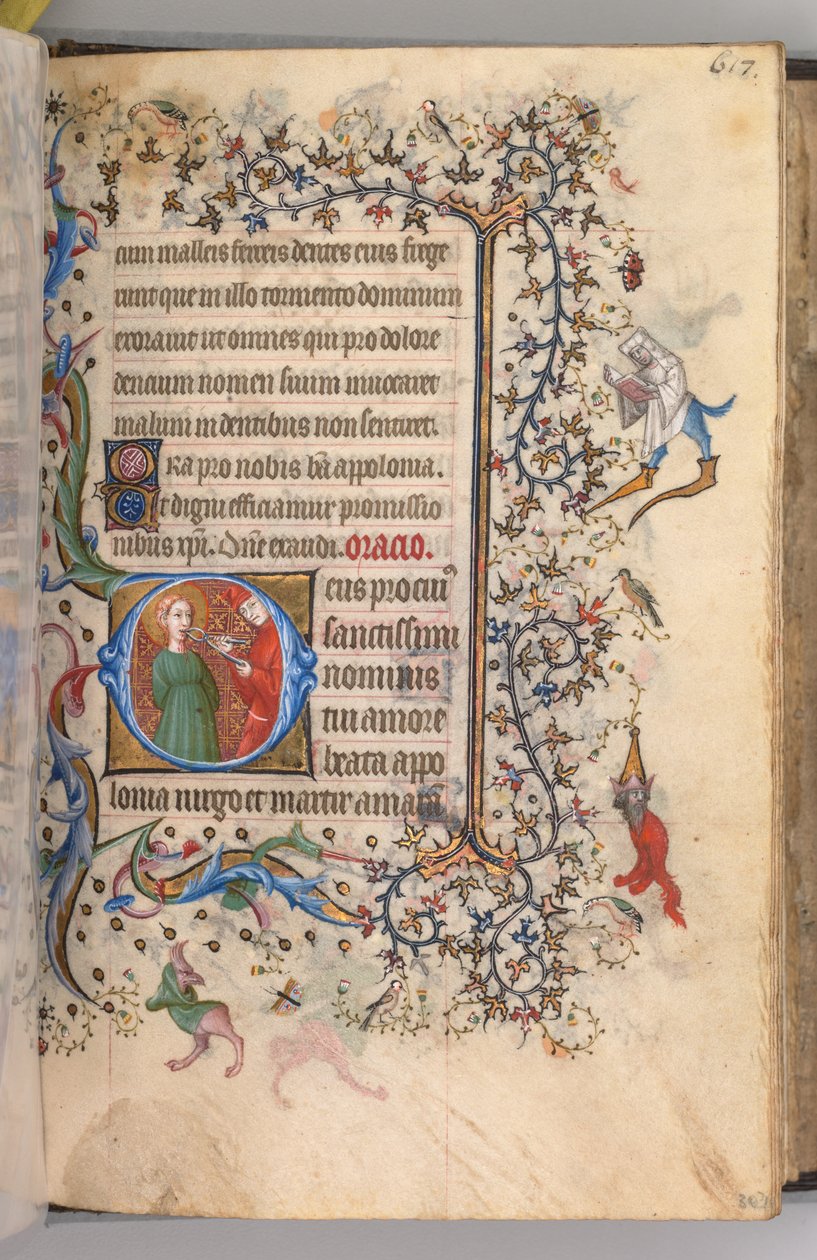 617.
cum malleis ferreis dentes eius frege
runt que in illo tormento dominum
exoravit ut omnes qui pro dolore
dencium nomen suum invocaret
malum in dentibus non sentiret.
Ora pro nobis bā appolonia.
Et digni efficiamur promissio
nibus xpi. Dn̄e exaudi. oracio.
Deus pro cuiꝰ
sanctissimi
nominis
tui amore
beata appo
lonia virgo et martir amarā
302